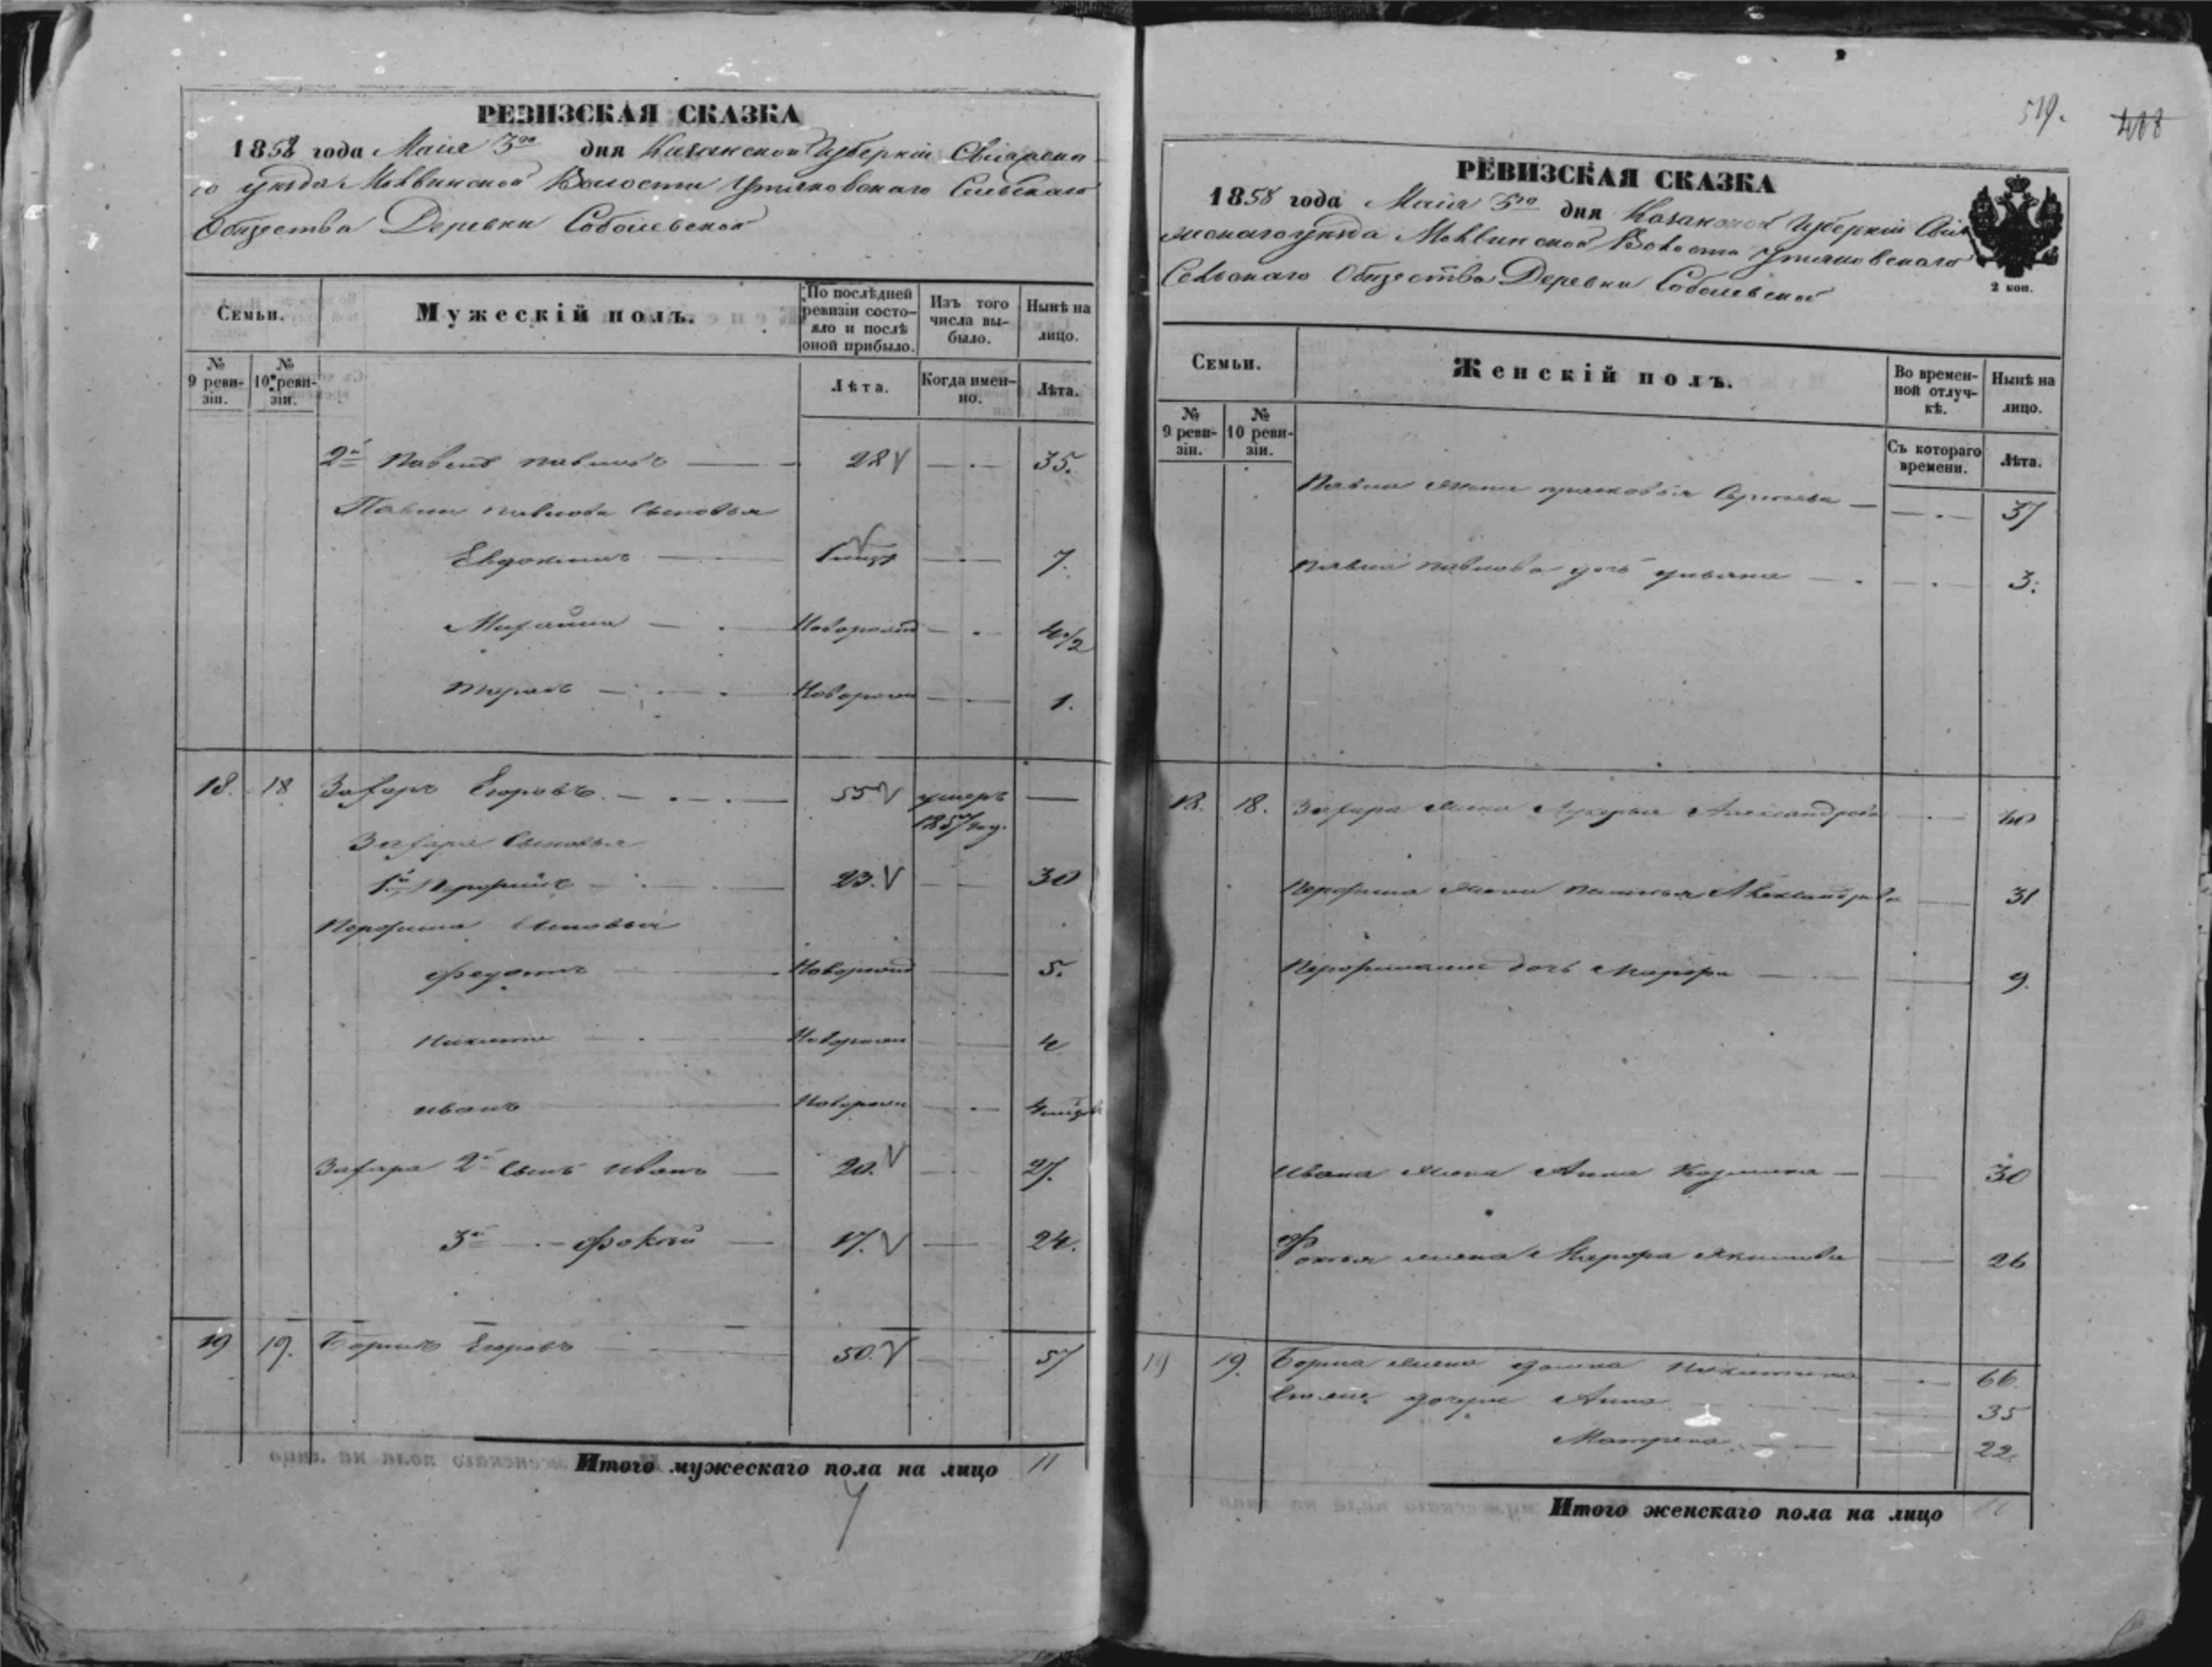 РЕВИЗСКАЯ СКАЗКА
1858 года Маія 3го дня Казанской Губерніи Свіяжска
го уѣзда Моквинской Волости Утяковскаго Сельскаго
Общества Деревни Соболевской
Семьи.
Мужескій полъ.
По послѣдней ревизіи состояло и послѣ оной прибыло.
Изъ того числа выбыло.
Нынѣ на лицо.
№ 9 ревизіи.
№ 10 ревизіи.
Лѣта.
Когда именно.
Лѣта.
2й Павелъ Павловъ 28 35.
Павла Павлова Сыновья
Евдокимъ 7.
Михайла Новорожд 4 1/2
Тарасъ Новорожд 1.
18. 18 Захаръ Егоровъ 55 умеръ 1857 год.
Захара Сыновья
1й Перфилъ 23. 30
Перфила Сыновья
Федотъ Новорожд 5.
Никита Новорожд 4
Иванъ Новорожд 4
Захара 2й Сынъ Иванъ 20. 27.
3й Фокѣй 17. 24.
19 19. Борисъ Егоровъ 50. 57
Итого мужескаго пола на лицо 11
519. 408
РЕВИЗСКАЯ СКАЗКА
1858 года Маія 3го дня Казанской Губерніи Свія
жскаго уѣзда Моквинской Волости Утяковскаго
Сельскаго Общества Деревни Соболевской
2 коп.
Семьи.
Женскій полъ.
Во временной отлучкѣ.
Нынѣ на лицо.
№ 9 ревизіи.
№ 10 ревизіи.
Съ котораго времени.
Лѣта.
Павла жена Прасковья Сергѣева 37
Павла Павлова дочь Ульяна 3.
18. 18. Захара жена Лукерья Александрова
Перфила жена Александрова 31
дочь Марфа 9.
Ивана жена Анна Козмина 30
Фокѣя жена Марфа Якимова 26
19 19. Бориса жена Домна Никитина 66.
дочери Анна 35
Матрена 22.
Итого женскаго пола на лицо 11